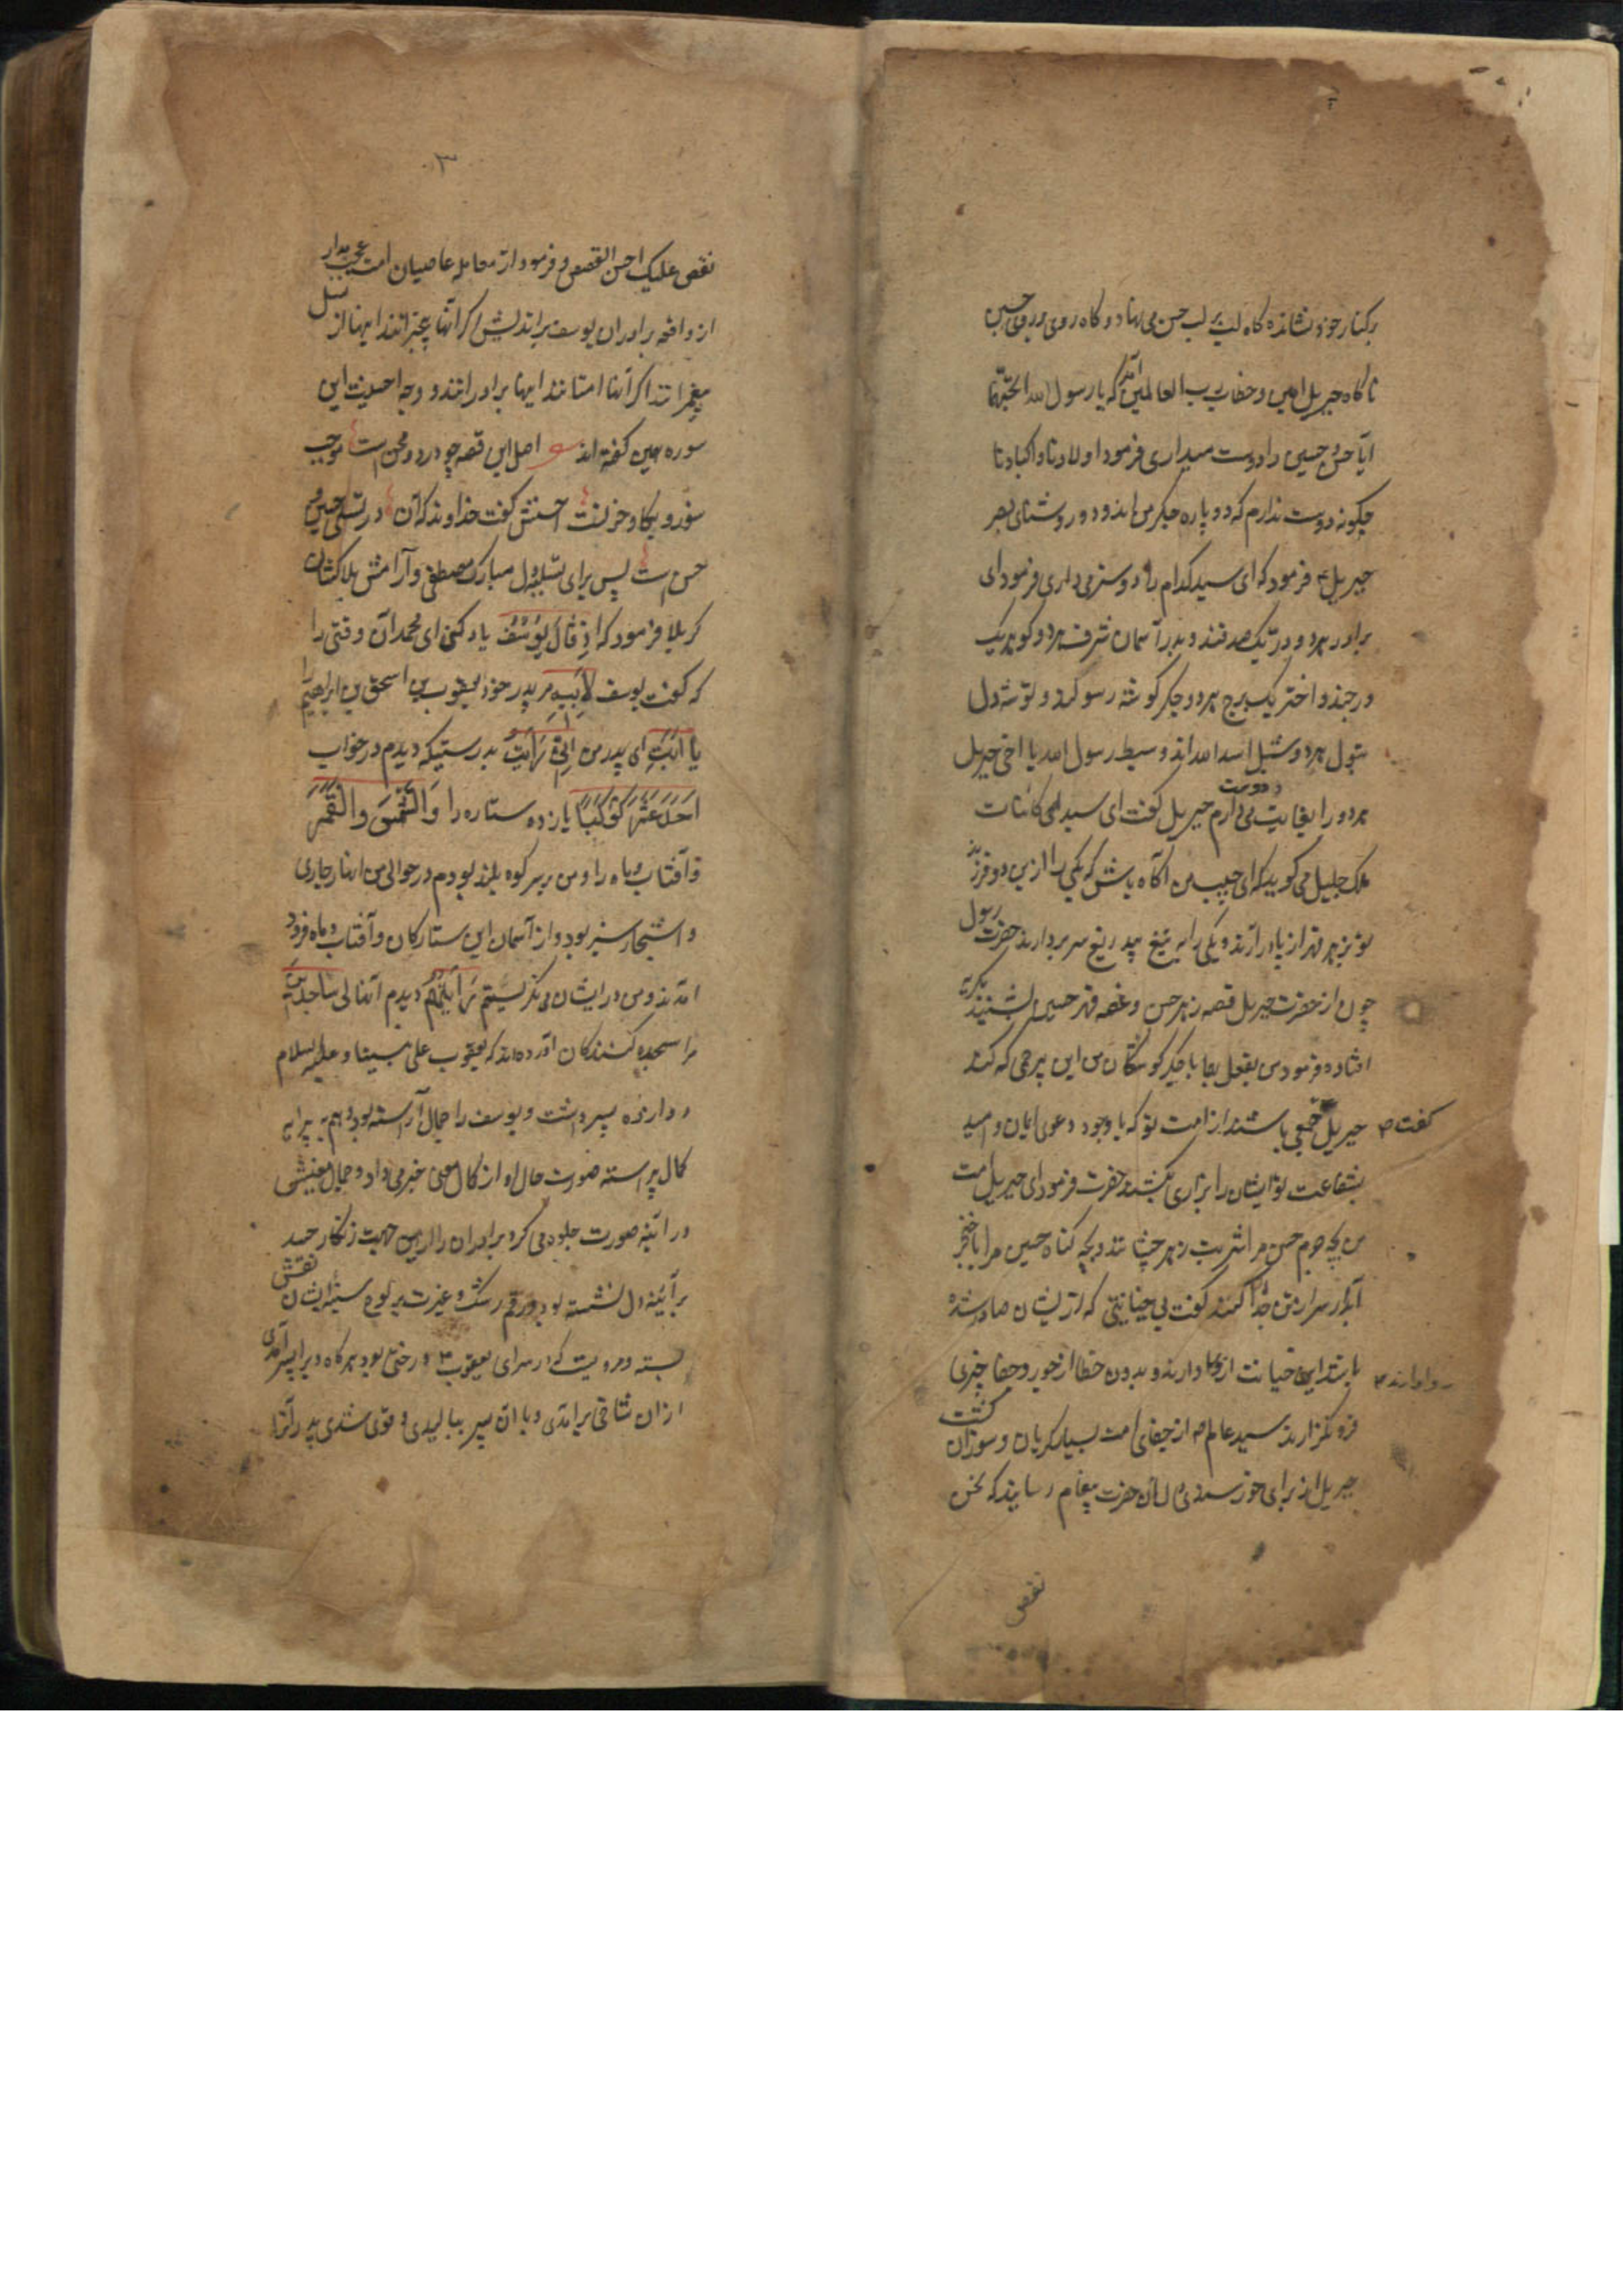 بر کنار خود نشانده گاه لب بر لب حسن می نهاد و گاه روی بر روی حسین
ناگاه جبریل امین و خطاب رب العالمین آمد که یا رسول الله اتحبهما
آیا حسن و حسین را دوست میداری فرمود اولادنا و اکبادنا
چگونه دوست ندارم که دو پاره جگر من اند و دو روشنای بصر
جبریل فرمود که ای سید کدام را دوستر می داری فرمود ای
برادر هر دو در یک صدفند و بدر آسمان شرف هر دو کوهر یک
درجند و اختر یک برج هر دو جگر گوشه رسولند و توشه دل
بتول هر دو شبل اسد الله اند و سبط رسول الله یا اخی جبریل
هر دو را بغایت دوست می دارم جبریل گفت ای سید کاینات
ملک جلیل می گوید که ای حبیب من آگاه باش که یکی را ازین دو فرزند
تو بزهر قهر از پا درآرند و یکی را به تیغ بیدریغ سر بردارند حضرت رسول
چون از حضرت جبریل قصه زهر حسن و غصه قهر حسین بشنید بگریه
افتاده فرمود من یفعل بها با جگر گوشگان من این بیرحمی که کند
گفت جبریل جمعی باشند از امت تو که با وجود دعوی ایمان و امید
بشفاعت تو ایشان را بزاری بکشند حضرت فرمود ای جبریل امت
من بچه جرم حسن مرا شربت زهر چشانند و بچه گناه حسین مرا با خنجر
آبدار سر از تن جدا کنند گفت بی خیانتی که از ایشان صادر شده
باشد این خیانت روا دارند و بدون خطا از جور و جفا چیزی
فرو نگذارند سید عالم از جفای امت بسیار گریان و سوزان گشت
جبریل از برای خورسندی دل آن حضرت پیغام رسانید که نحن
نقص
۳
نقص علیک احسن القصص و فرمود از معامله عاصیان امت عجب مدار
از واقعه برادران یوسف براندیش اگر آنها بیخبرانند اینها از نسل
پیغمبرانند اگر آنها امتانند اینها برادرانند و وجه احسنیت این
سوره همین گفته اند اصل این قصه چو درد و محن است موجب
سوز و بکا و حزنست احسنش گفت خداوند که آن در تسلی حسین و
حسن است پس برای تسلیه دل مبارک مصطفی و آرامش بلاکشان
کربلا فرمود که اذ قال یوسف یاد کن ای محمد آن وقتی را
که گفت یوسف لابیه مر پدر خود یعقوب بن اسحق بن ابراهیم را
یا ابت ای پدر من انی رایت بدرستیکه دیدم در خواب
احد عشر کوکبا یازده ستاره را والشمس والقمر
و آفتاب و ماه را و من بر سر کوه بلند بودم در حوالی من انهار جاری
و اشجار سبز بود و از آسمان این ستارگان و آفتاب و ماه فرود
آمدند و من در ایشان می نگریستم رایتهم دیدم آنها لی ساجدین
مرا سجده کنندگان آورده اند که یعقوب علی نبینا و علیه السلام
دوازده پسر داشت و یوسف را جمال آراسته بود و هم به پیرایه
کمال پیراسته صورت حال او از کمال معنی خبر می داد و جمال معنیش
در آئینه صورت جلوه می کرد برادران را ازین جهت زنگار حسد
بر آئینه دل نشسته بود و رقم رشک و غیرت بر لوح سینه ایشان نقش
بسته و مرویست که در سرای یعقوب درختی بود هر گاه ویرا پسر آمدی
از آن شاخی برآمدی و با آن پسر ببالیدی و قوی شدی پدر آنرا